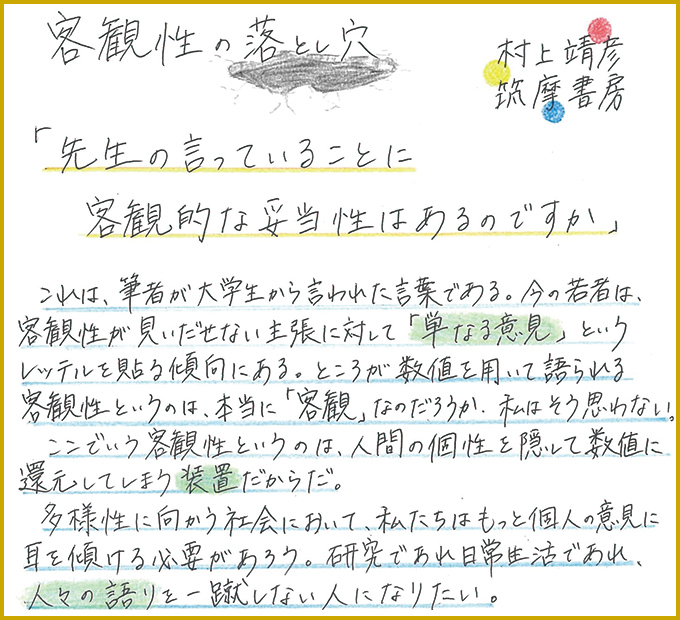 客観性の落とし穴
村上靖彦
筑摩書房
「先生の言っていることに
客観的な妥当性はあるのですか」
これは、筆者が大学生から言われた言葉である。今の若者は、
客観性が見いだせない主張に対して「単なる意見」という
レッテルを貼る傾向にある。ところが数値を用いて語られる
客観性というのは、本当に「客観」なのだろうか。私はそう思わない。
ここでいう客観性というのは、人間の個性を隠して数値に
還元してしまう装置だからだ。
多様性に向かう社会において、私たちはもっと個人の意見に
耳を傾ける必要があろう。研究であれ日常生活であれ、
人々の語りを一蹴しない人になりたい。